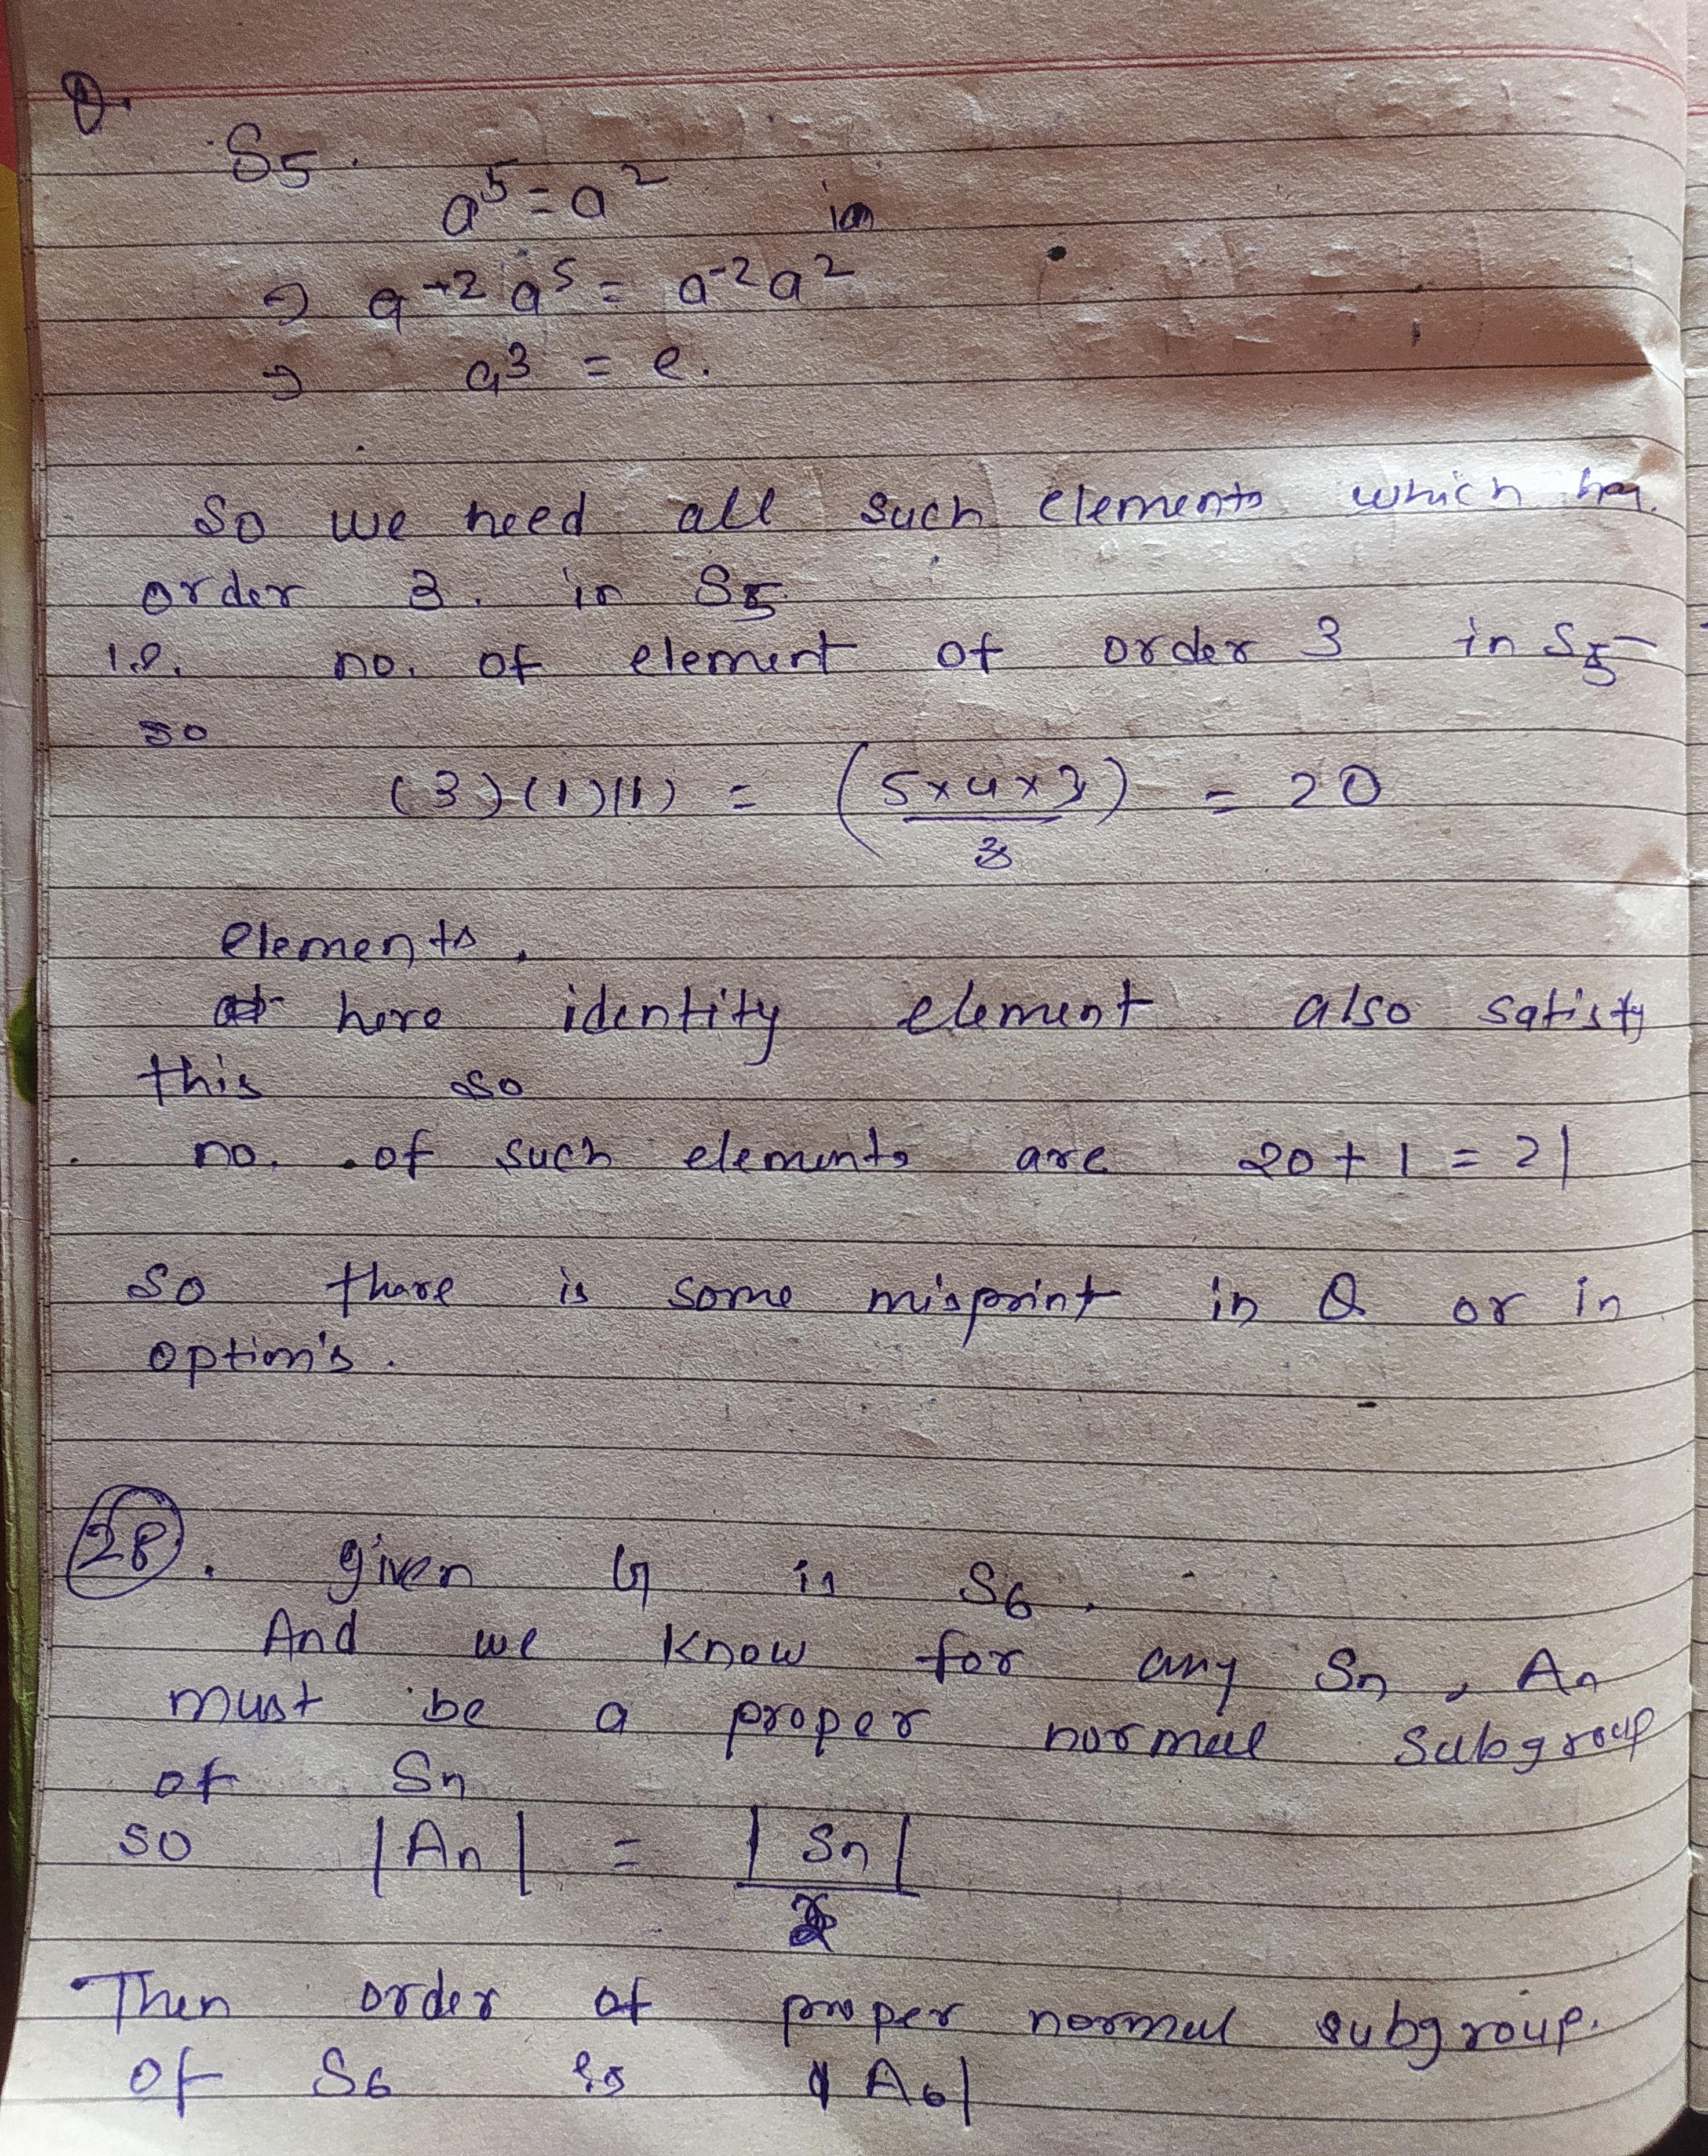 Q.
S5.
a^5 = a^2 in
⇒ a^-2 a^5 = a^-2 a^2
⇒ a^3 = e.
So we need all such elements which has
order 3. in S5
i.e. no. of element of order 3 in S5
so
(3)(1)(1) = (5×4×3)/3 = 20
elements.
here identity element also satisfy
this so
no. of such elements are 20 + 1 = 21
So there is some misprint in Q or in
option's.
28. given G is S6.
And we know for any Sn, An
must be a proper normal subgroup
of Sn
so |An| = |Sn|/2
Then order of proper normal subgroup.
of S6 is |A6|